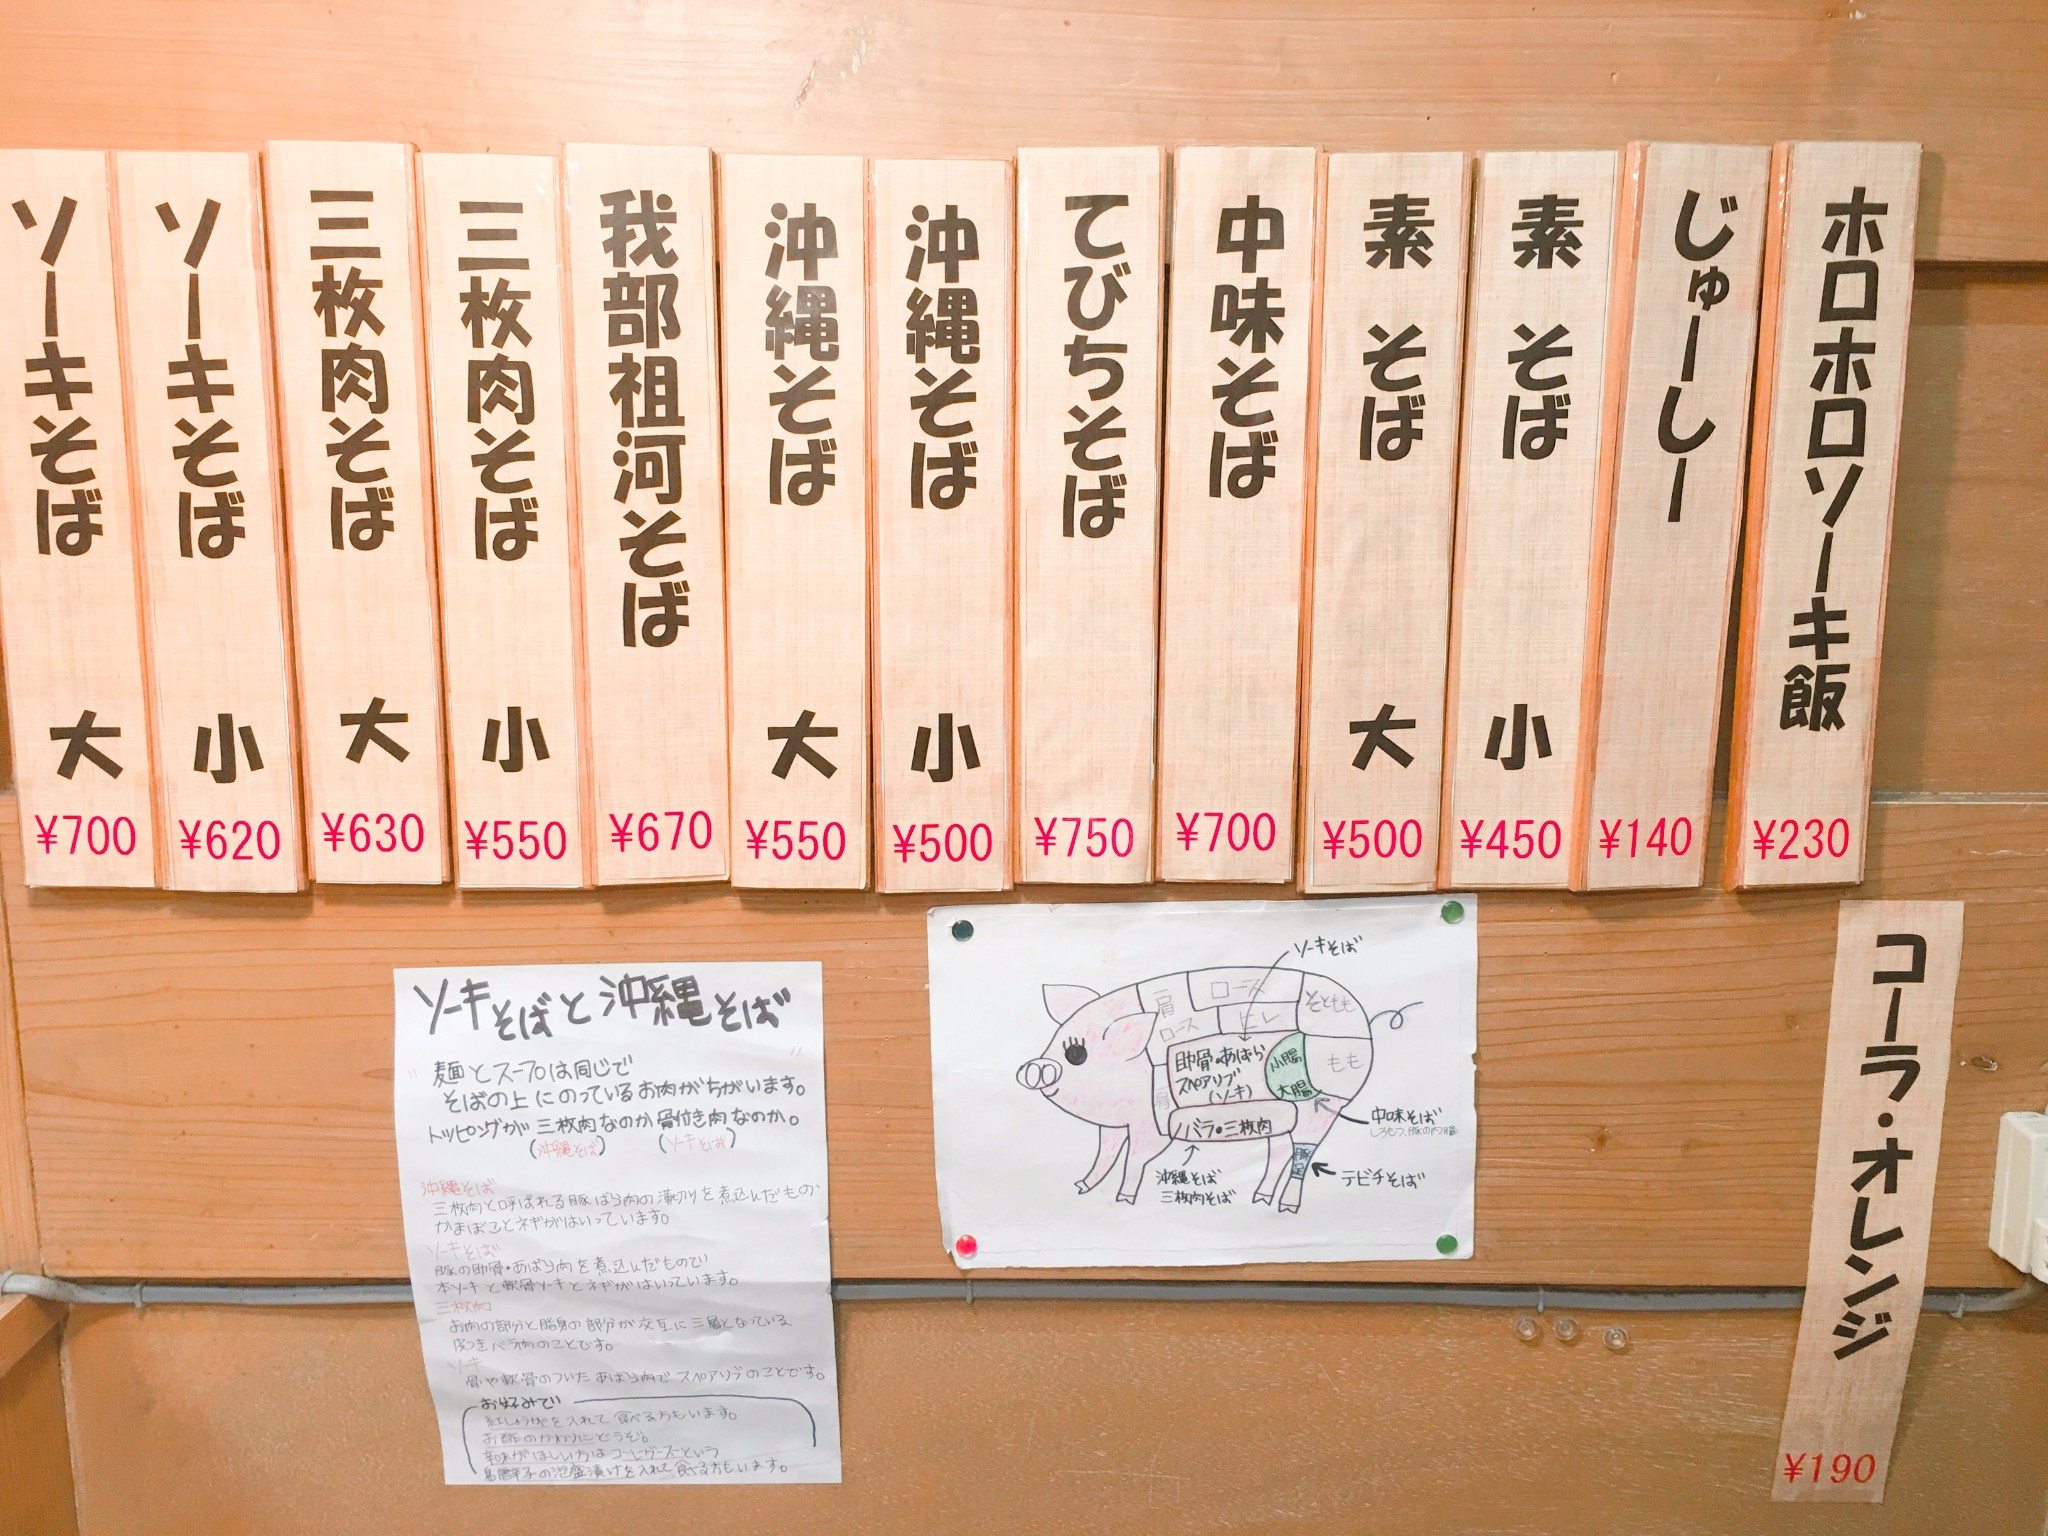 ソーキそば 大 ¥700
ソーキそば 小 ¥620
三枚肉そば 大 ¥630
三枚肉そば 小 ¥550
我部祖河そば ¥670
沖縄そば 大 ¥550
沖縄そば 小 ¥500
てびちそば ¥750
中味そば ¥700
素そば 大 ¥500
素そば 小 ¥450
じゅーしー ¥140
ホロホロソーキ飯 ¥230
コーラ・オレンジ ¥190
ソーキそばと沖縄そば
"麺とスープは同じで
そばの上にのっているお肉がちがいます。"
トッピングが三枚肉なのか骨付き肉なのか。
(沖縄そば) (ソーキそば)
沖縄そば
三枚肉と呼ばれる豚ばら肉の薄切りを煮込んだものが
かまぼことネギがはいっています。
ソーキそば
豚の肋骨・あばら肉を煮込んだもので
本ソーキと軟骨ソーキとネギがはいっています。
三枚肉
お肉の部分と脂身の部分が交互に三層となっている、
皮つきバラ肉のことです。
ソーキ
骨や軟骨のついたあばら肉でスペアリブのことです。
お好みで
紅しょうがを入れて食べる方もいます。
お酢のかわりにどうぞ。
辛味がほしい方はコーレーグースーという
島唐辛子の泡盛漬けを入れて食べる方もいます。
ソーキそば
肩ロース
ロース
ヒレ
そともも
もも
肩
肋骨・あばら
スペアリブ
(ソーキ)
小腸
大腸
バラ・三枚肉
豚足
中味そば
沖縄そば
三枚肉そば
テビチそば